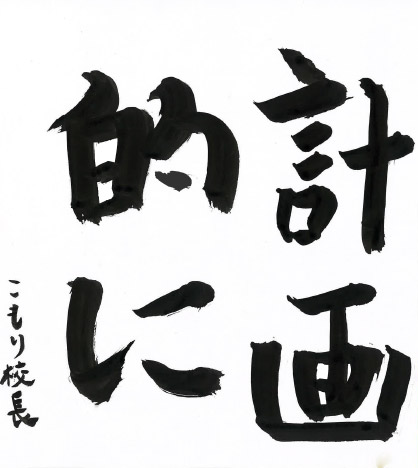 計画
的に
こもり校長